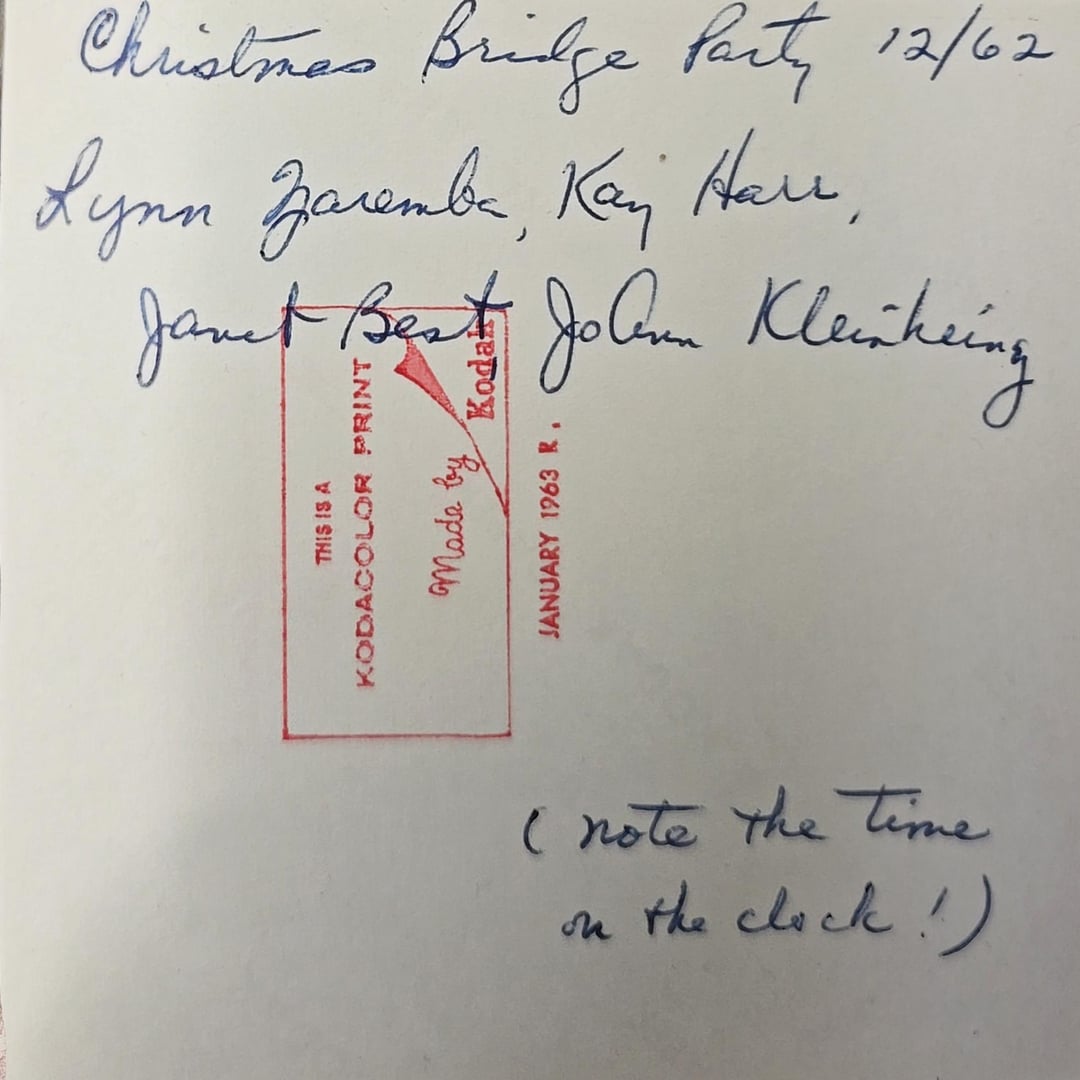 Christmas Bridge Party 12/62
Lynn Zaremba, Kay Harr,
Janet Best JoAnn Kleinheinz
THIS IS A
KODACOLOR PRINT
Made by
Kodak
JANUARY 1963 R.
(note the time
on the clock!)